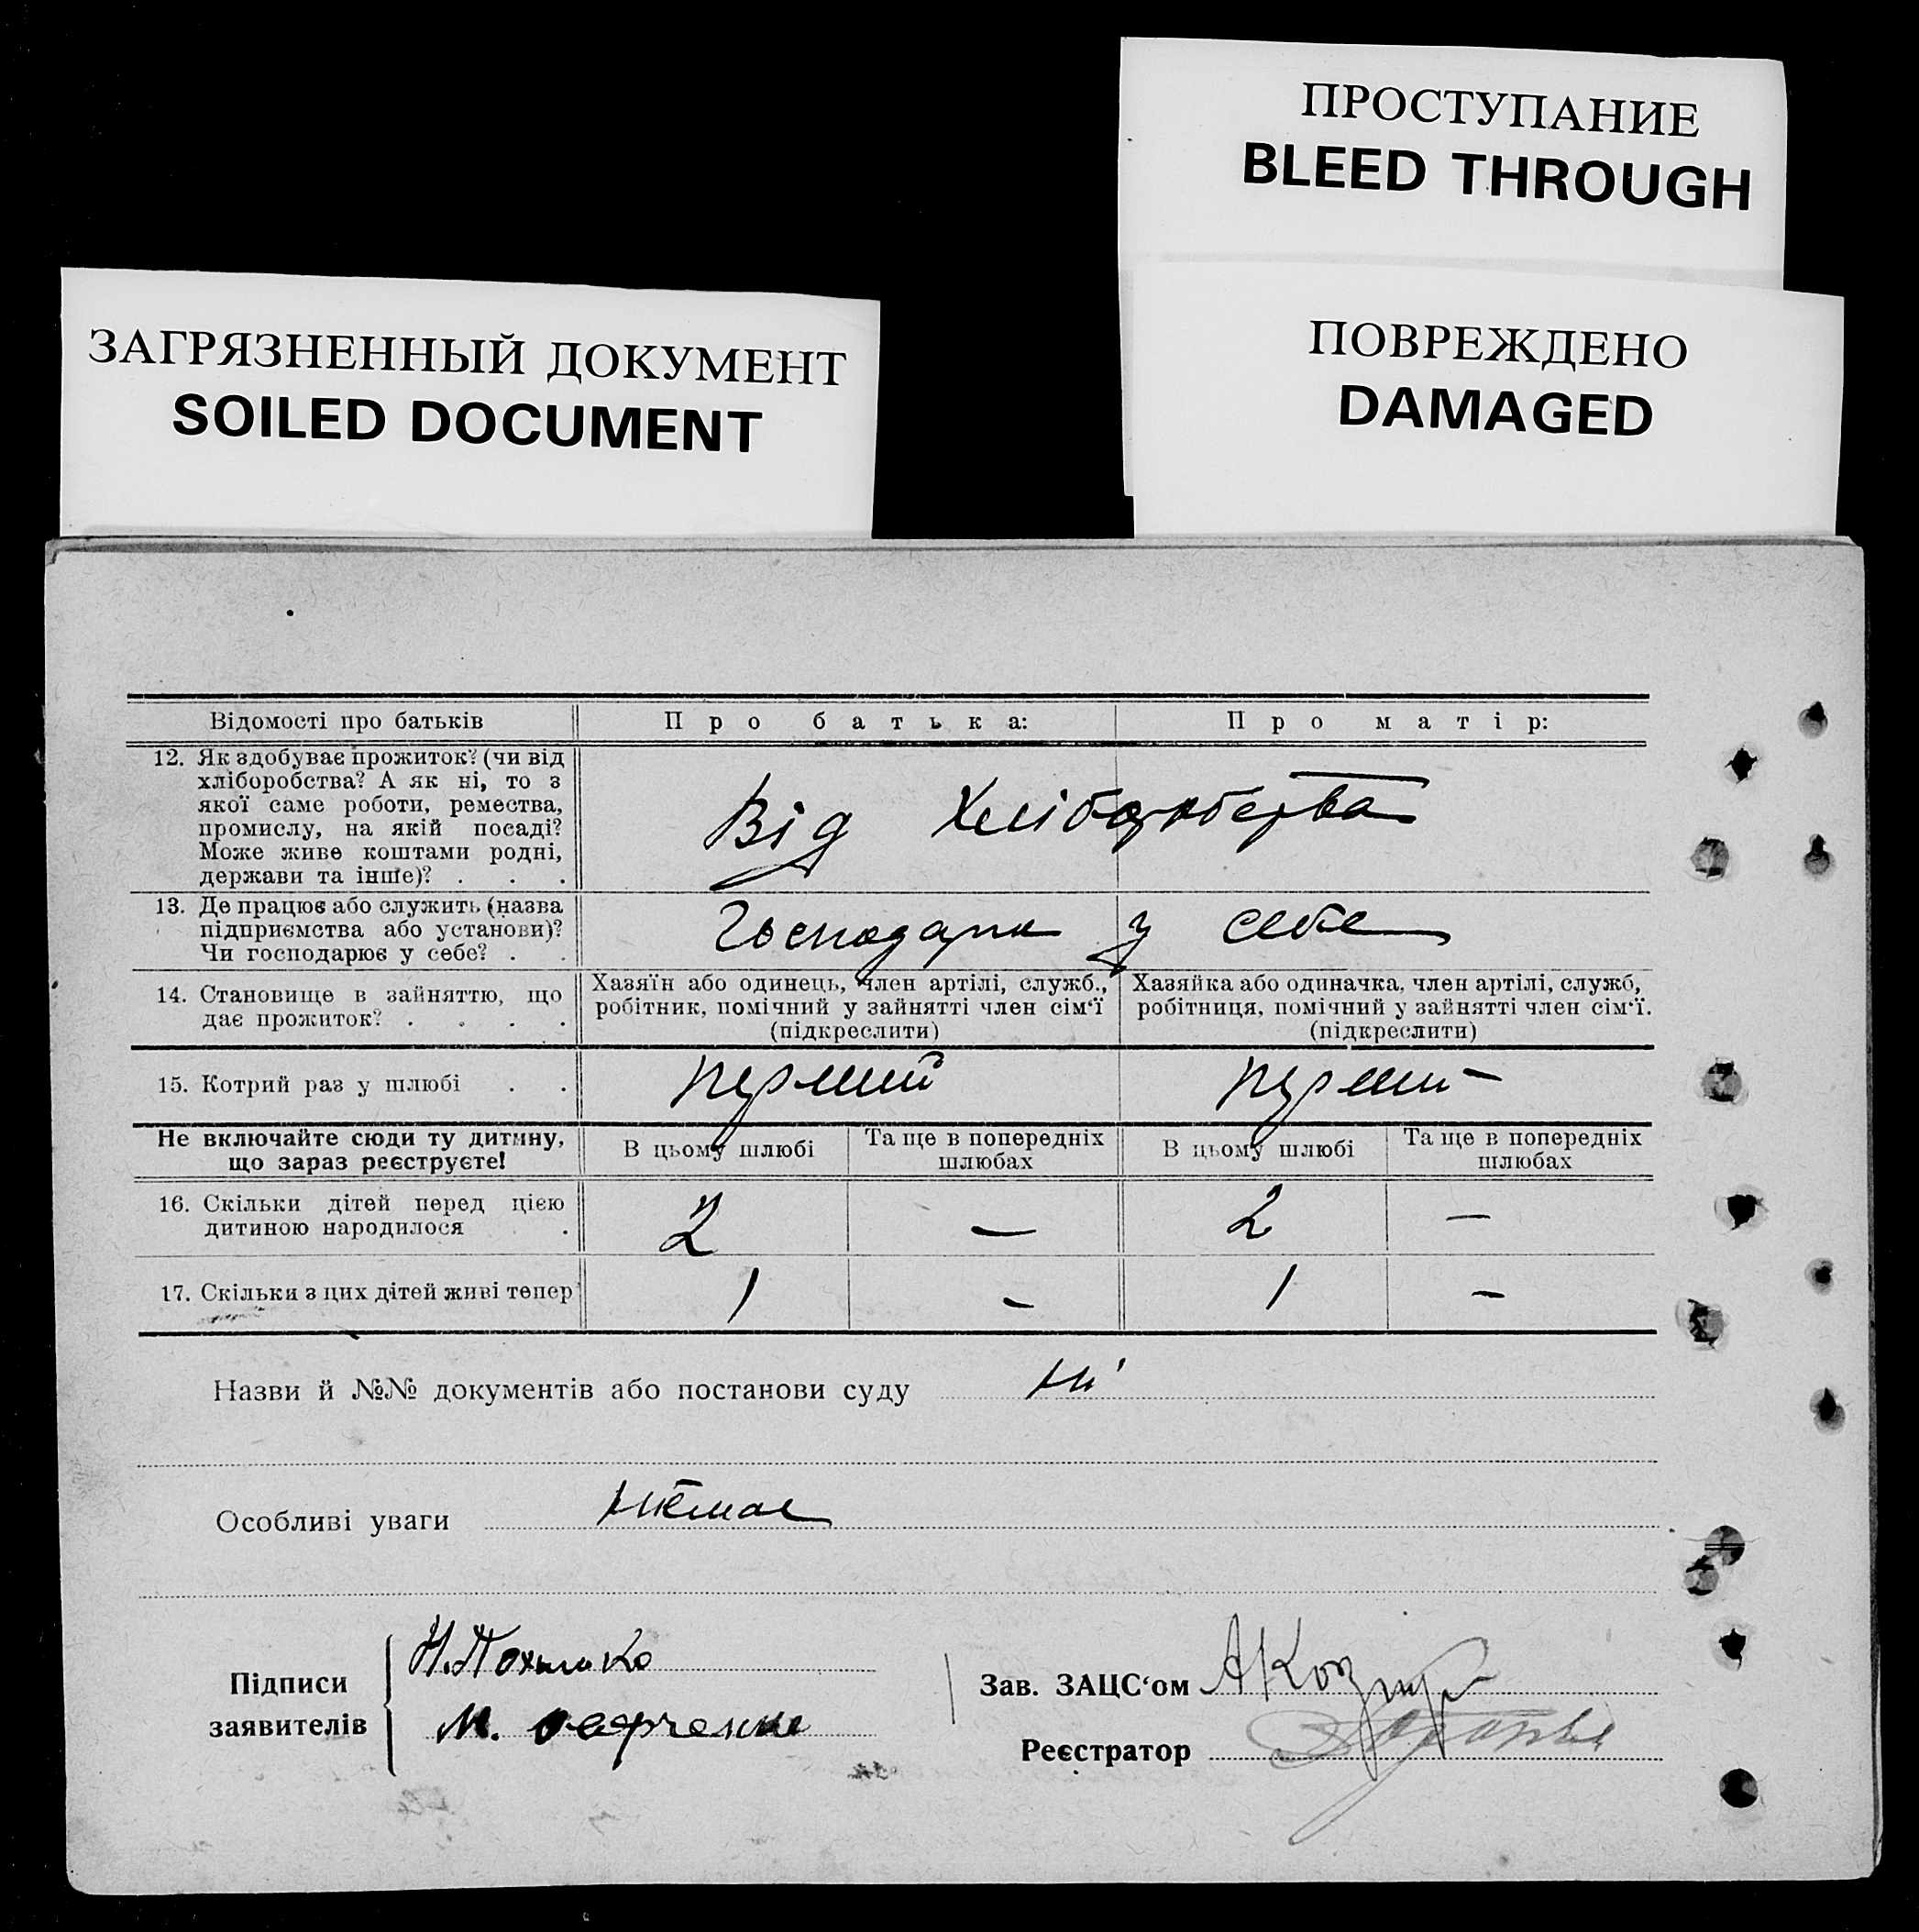 ПРОСТУПАНИЕ
BLEED THROUGH
ЗАГРЯЗНЕННЫЙ ДОКУМЕНТ
SOILED DOCUMENT
ПОВРЕЖДЕНО
DAMAGED
Відомості про батьків
Про батька:
Про матір:
12. Як здобуває прожиток? (чи від
хліборобства? А як ні, то з
якої саме роботи, ремества,
промислу, на якій посаді?
Може живе коштами родні,
держави та інше)? . . .
Від Хліборобства
13. Де працює або служить (назва
підприємства або установи)?
Чи господарює у себе? . .
Господарки у себе
14. Становище в зайняттю, що
дає прожиток? . . . .
Хазяїн або одинець, член артілі, служб.,
робітник, помічний у зайнятті член сім‘ї
(підкреслити)
Хазяйка або одиначка, член артілі, служб,
робітниця, помічний у зайнятті член сім‘ї.
(підкреслити)
15. Котрий раз у шлюбі . .
перший
перший
Не включайте сюди ту дитину,
що зараз реєструєте!
В цьому шлюбі
Та ще в попередніх
шлюбах
В цьому шлюбі
Та ще в попередніх
шлюбах
16. Скільки дітей перед цією
дитиною народилося .
2 — 2 —
17. Скільки з цих дітей живі тепер
1 — 1 —
Назви й №№ документів або постанови суду ні
Особливі уваги немає
Підписи
заявителів
Н.
М.
Зав. ЗАЦС‘ом А
Реєстратор